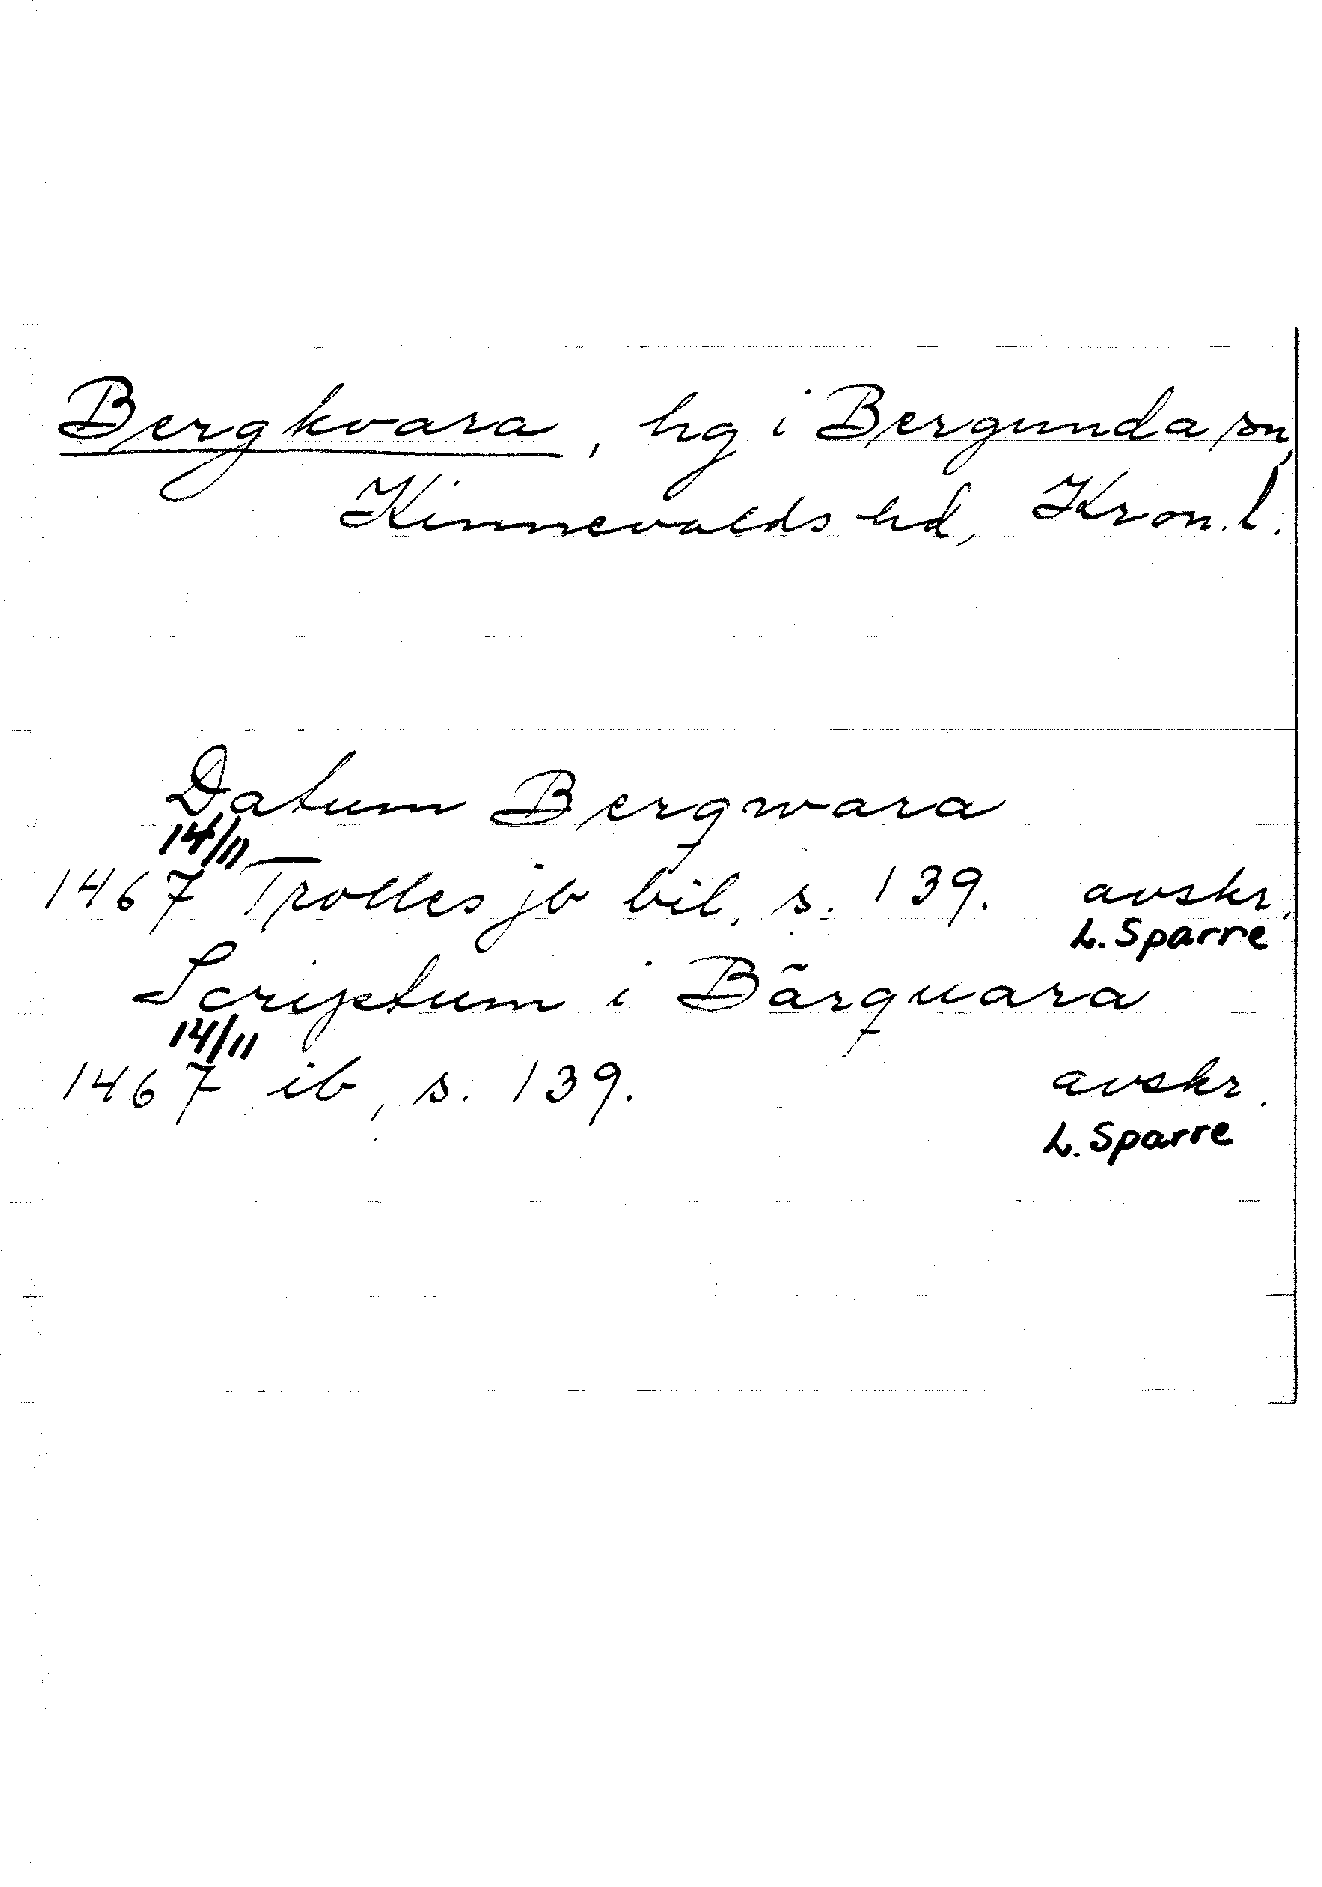 Bergkvara, hg i Bergunda sn,
Kinnevalds hd, Kron.l.
Datum Bergwara
14/11
1467 Trolles jb bil, s. 139. avskr.
L. Sparre
Scriptum i Bärquara
14/11
1467 ib, s. 139. avskr.
L. Sparre